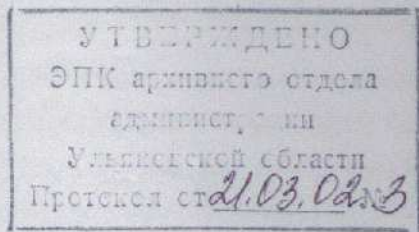 УТВЕРЖДЕНО
ЭПК архивного отдела
администрации
Ульяновской области
Протокол от 21.03.02 № 3